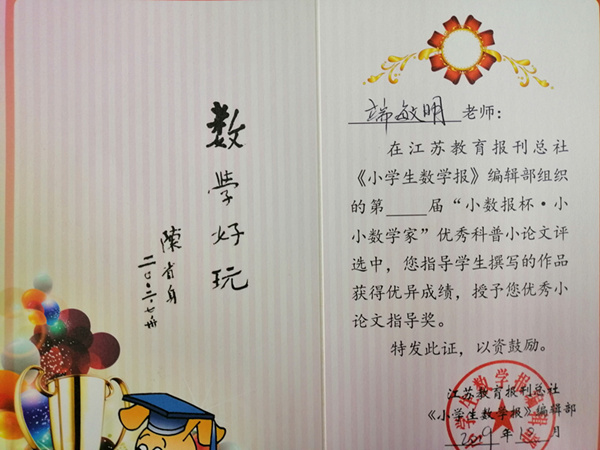 数學好玩
陳省身
端敏明 老师：
在江苏教育报刊总社
《小学生数学报》编辑部组织
的第____届“小数报杯·小
小数学家”优秀科普小论文评
选中，您指导学生撰写的作品
获得优异成绩，授予您优秀小
论文指导奖。
特发此证，以资鼓励。
江苏教育报刊总社
《小学生数学报》编辑部
2019 年 月